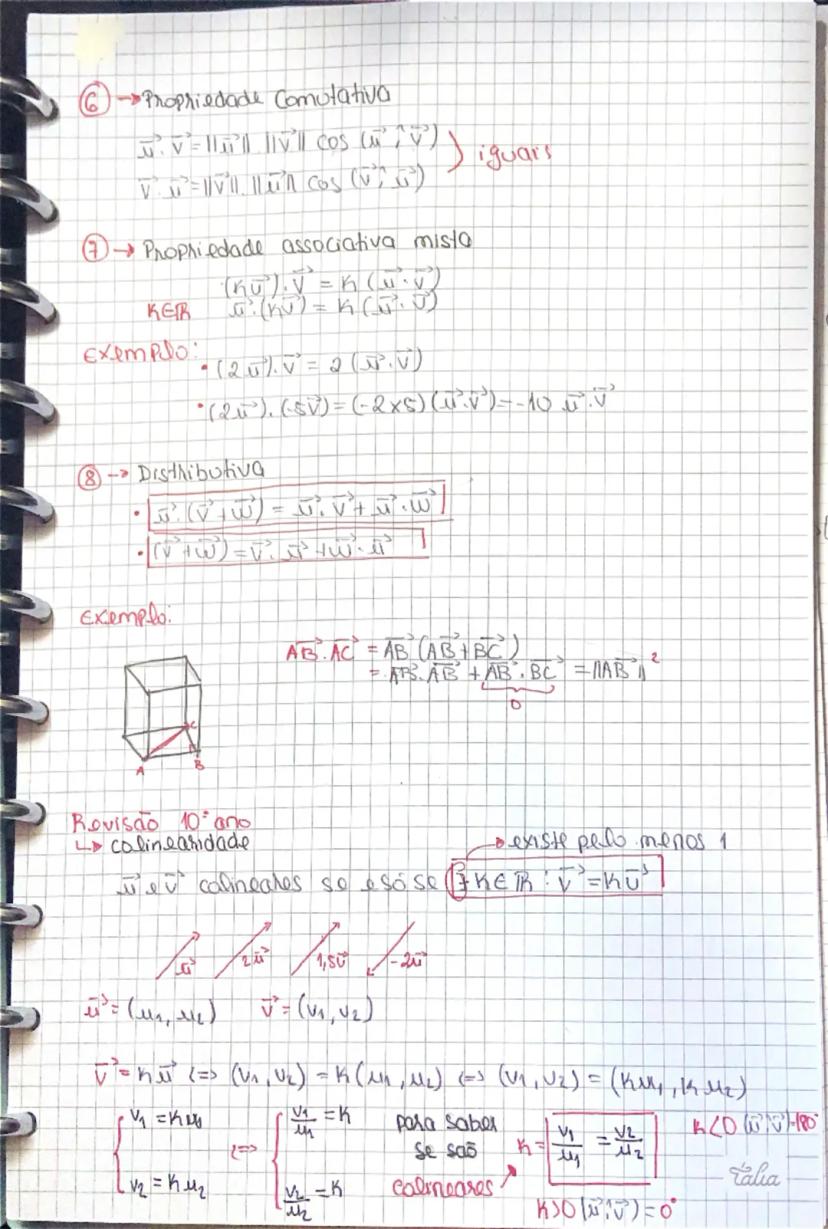 ⑥ → Propriedade Comutativa
u⃗ . v⃗ = ||u⃗|| . ||v⃗|| cos (u⃗ ^, v⃗)
v⃗ . u⃗ = ||v⃗|| . ||u⃗|| cos (v⃗ ^, u⃗)
} iguais
⑦ → Propriedade associativa mista
(Ku⃗) . v⃗ = K (u⃗ . v⃗)
K∈ℝ u⃗ . (Kv⃗) = K (u⃗ . v⃗)
Exemplo:
• (2u⃗) . v⃗ = 2 (u⃗ . v⃗)
• (2u⃗) . (-5v⃗) = (-2x5) (u⃗ . v⃗) = -10 u⃗ . v⃗
⑧ → Distributiva
• u⃗ . (v⃗ + w⃗) = u⃗ . v⃗ + u⃗ . w⃗
• (v⃗ + w⃗) = v⃗ . u⃗ + w⃗ . u⃗
Exemplo:
AB⃗ . AC⃗ = AB⃗ (AB⃗ + BC⃗)
= AB⃗ . AB⃗ + AB⃗ . BC⃗ = ||AB⃗||²
0
C
A B
Revisão 10º ano
↳ colinearidade
→ existe pelo menos 1
u⃗ e v⃗ colineares se e só se ∃ K∈ℝ : v⃗ = Ku⃗
u⃗ 2u⃗ 1,5u⃗ -2u⃗
u⃗ = (u1, u2) v⃗ = (v1, v2)
v⃗ = Ku⃗ <=> (v1, v2) = K(u1, u2) <=> (v1, v2) = (Ku1, Ku2)
{ v1 = Ku1 <=> { v1/u1 = K
v2 = Ku2 v2/u2 = K
para saber
se são
colineares
K = v1/u1 = v2/u2
K<0 (u⃗ ^, v⃗) = 180º
K>0 (u⃗ ^, v⃗) = 0º
Tália